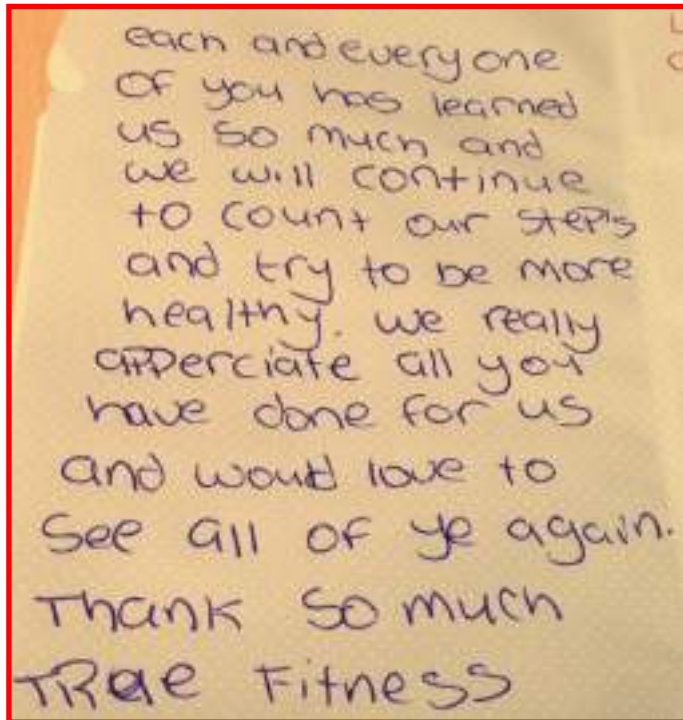 each and every one
of you has learned
us so much and
we will continue
to count our step's
and try to be more
healthy. we really
apperciate all you
have done for us
and would love to
See all of ye again.
Thank so much
Fitness